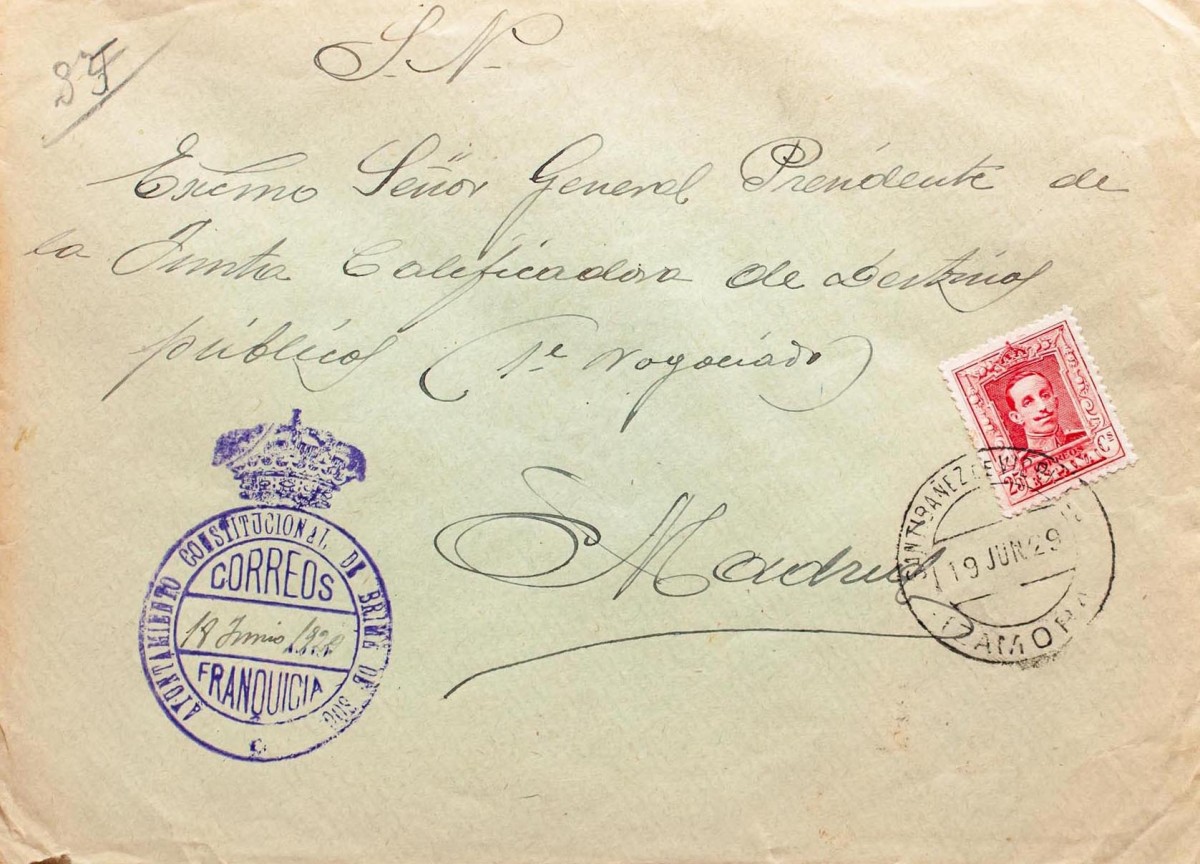 S. N.
Excmo Señor General Presidente de
la Junta Calificadora de Destinos
públicos (1er Negociado)
Madrid
AYUNTAMIENTO CONSTITUCIONAL DE BRIME DE SOG
CORREOS
18 Junio 1929
FRANQUICIA
CORREOS
25 Cs
SANTIBAÑEZ DE
19 JUN 29
ZAMORA